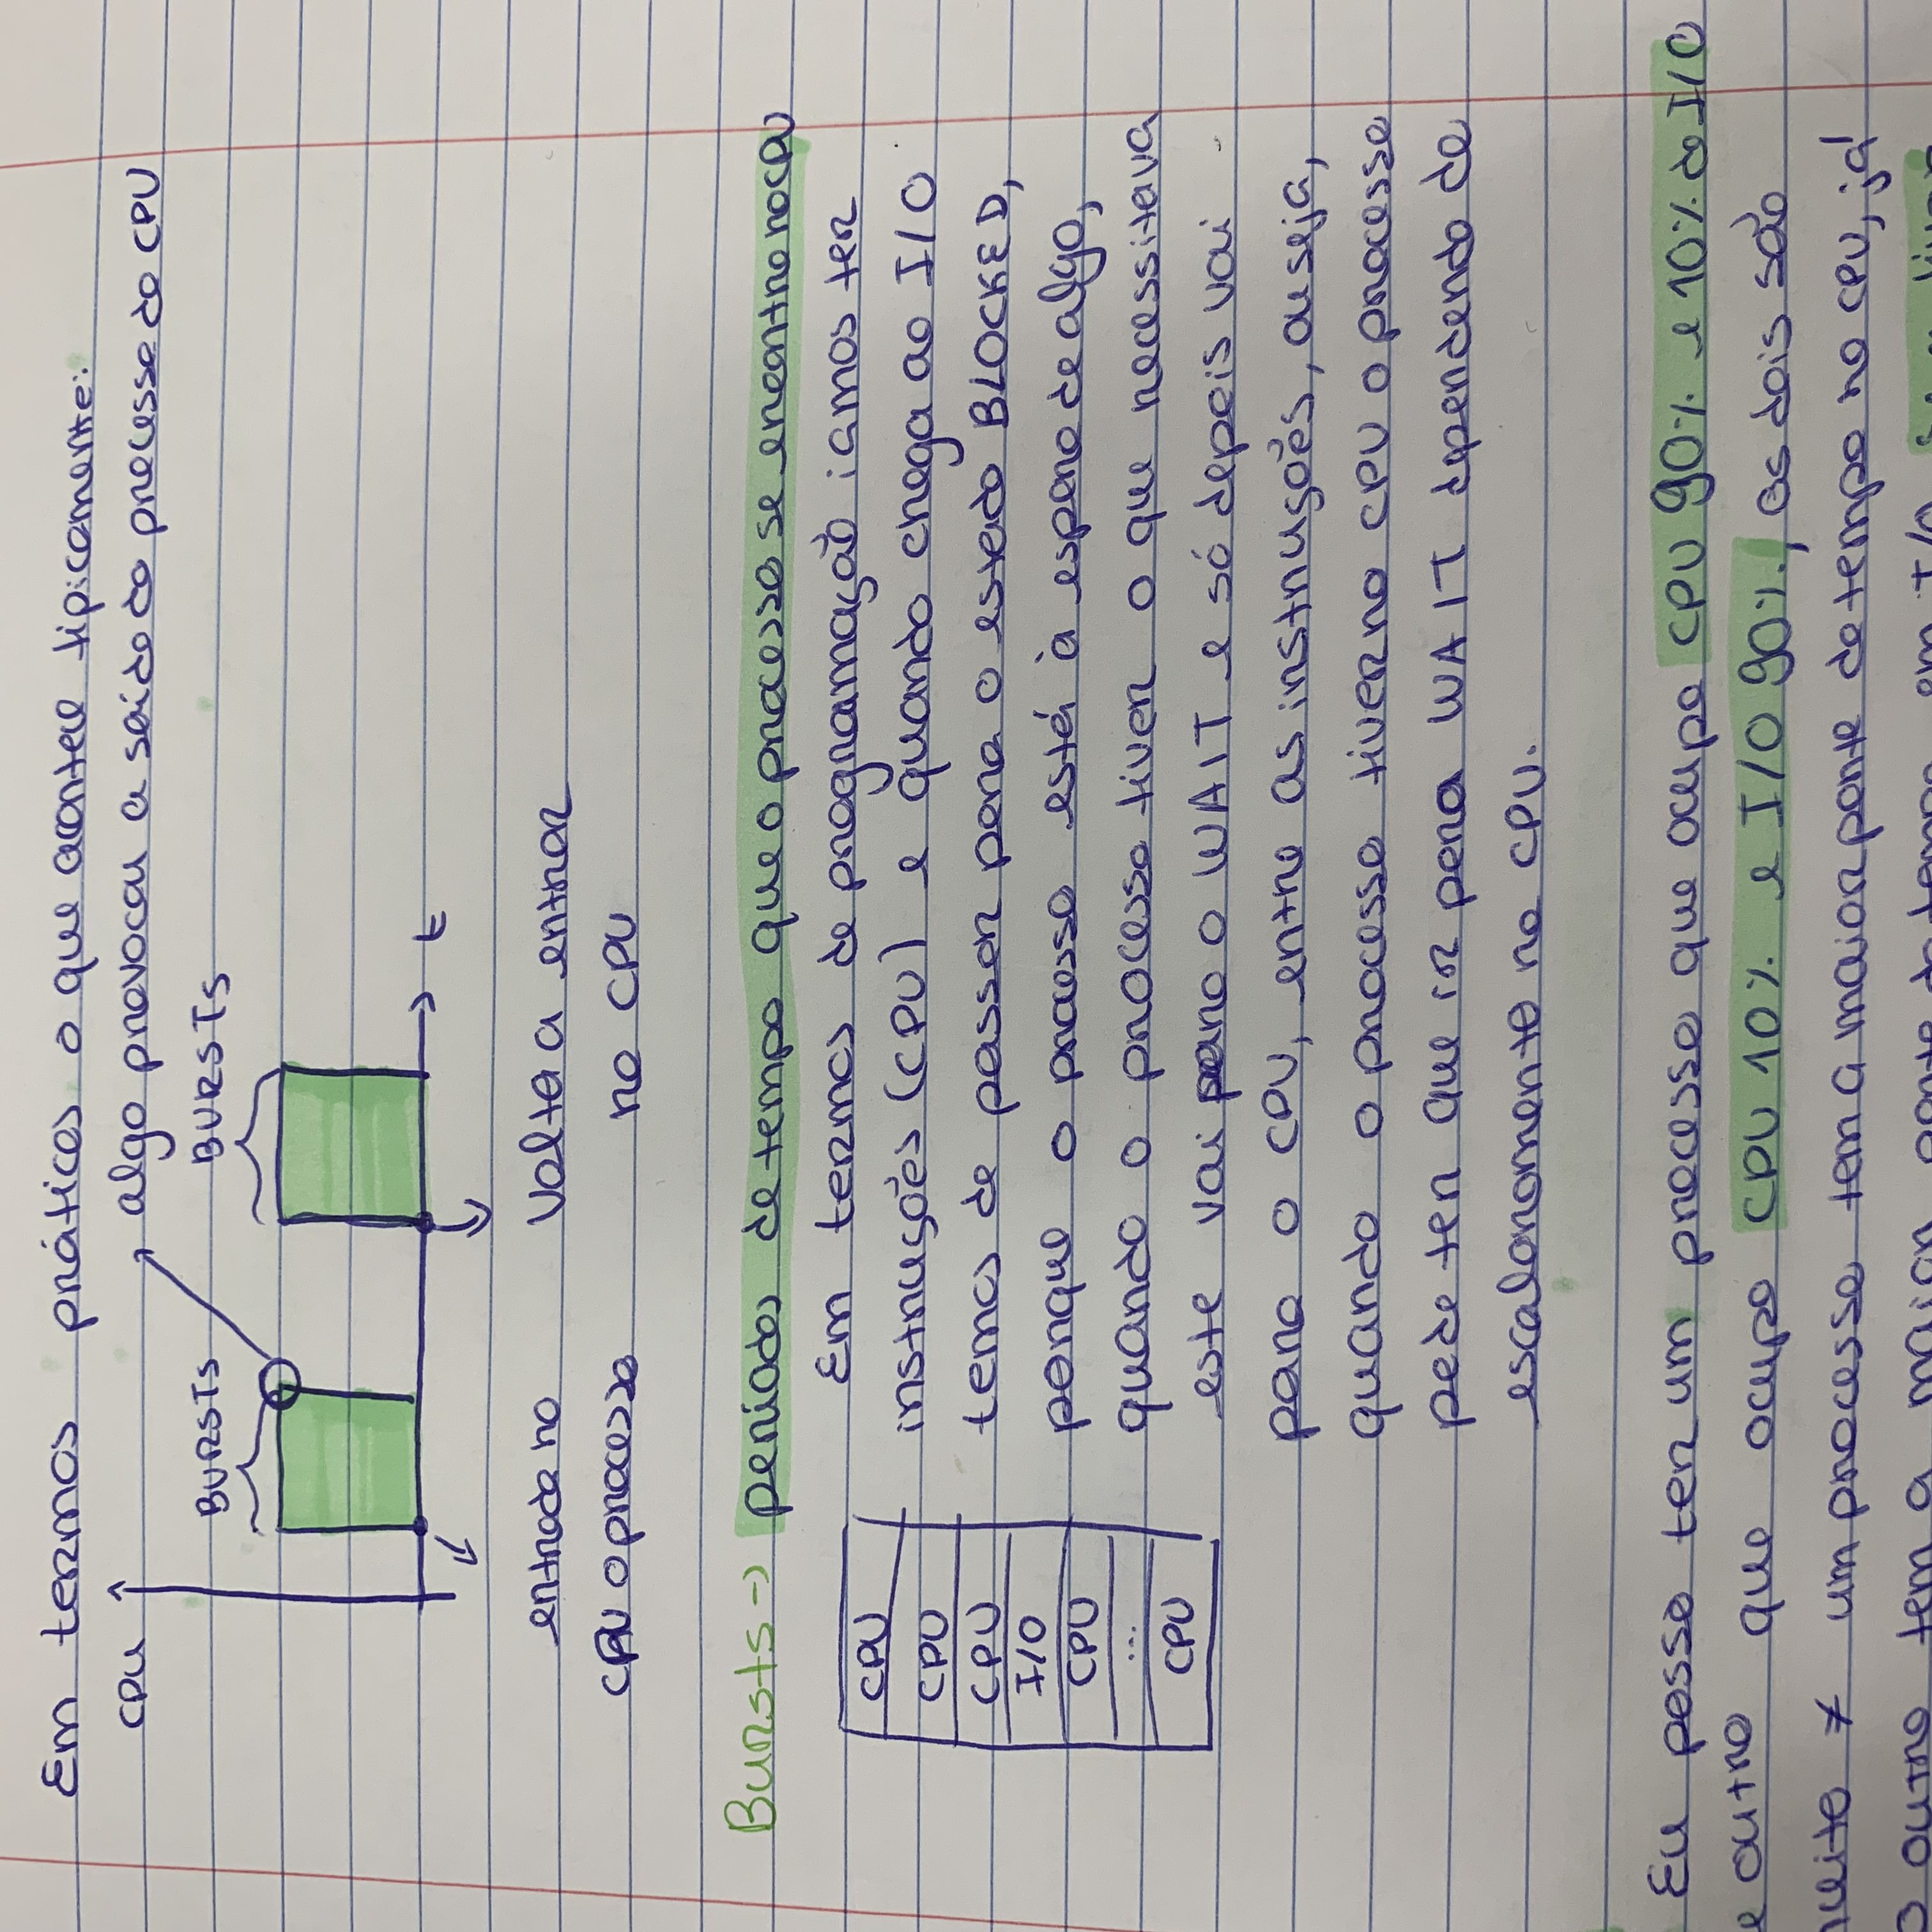 Em termos práticos o que acontece tipicamente:
CPU
algo provocou a saída do processo do CPU
BURSTS BURSTS
t
entrada no
CPU o processo
Volta a entrar
no CPU
Bursts → períodos de tempo que o processo se encontra no CPU
Em termos de programação iamos ter
instruções (CPU) e quando chega ao I/O
temos de passar para o estado BLOCKED,
porque o processo está à espera de algo,
quando o processo tiver o que necessitava
este vai para o WAIT e só depois vai
para o CPU, entre as instruções, ou seja,
quando o processo tiver no CPU o processo
pode ter que ir para WAIT dependendo do
escalonamento no CPU.
CPU
CPU
CPU
I/O
CPU
...
CPU
Eu posso ter um processo que ocupa CPU 90% e 10% do I/O
e outro que ocupa CPU 10% e I/O 90%, os dois são
≠ um processo tem a maior parte do tempo no CPU, já
o outro tem a maior parte do tempo em I/O